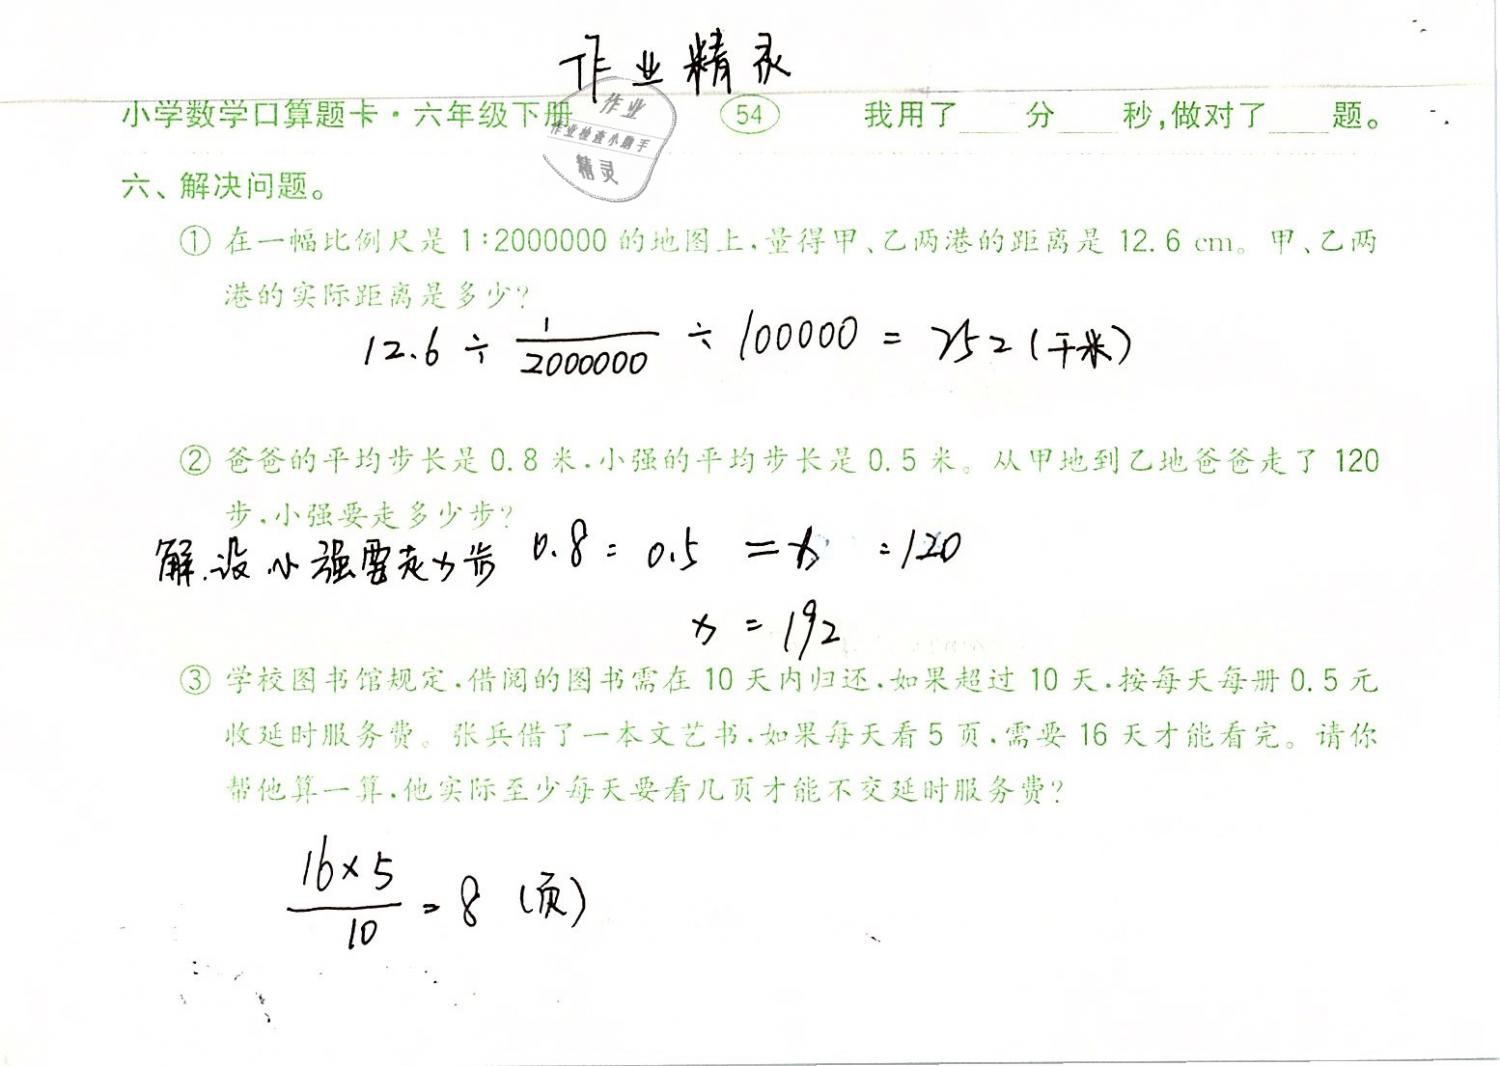 作业精灵
小学数学口算题卡·六年级下册 54 我用了 分 秒,做对了 题。
作业
作业检查小助手
精灵
六、解决问题。
① 在一幅比例尺是 1:2000000 的地图上,量得甲、乙两港的距离是 12.6 cm。甲、乙两
港的实际距离是多少?
12.6 ÷ 1/2000000 ÷ 100000 = 252(千米)
② 爸爸的平均步长是 0.8 米,小强的平均步长是 0.5 米。从甲地到乙地爸爸走了 120
步,小强要走多少步?
解.设小强要走x步 0.8 : 0.5 = x : 120
x = 192
③ 学校图书馆规定,借阅的图书需在 10 天内归还,如果超过 10 天,按每天每册 0.5 元
收延时服务费。张兵借了一本文艺书,如果每天看 5 页,需要 16 天才能看完。请你
帮他算一算,他实际至少每天要看几页才能不交延时服务费?
16×5/10 = 8 (页)